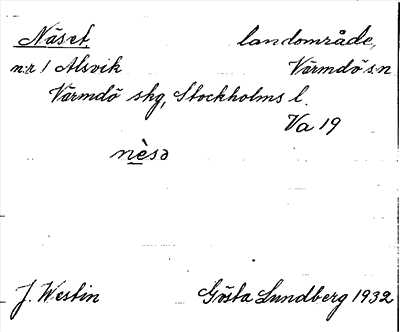 Näset, landområde,
n:r 1 Alsvik Värmdö sn
Värmdö skg, Stockholms l.
Va 19
nèsə
J. Westin Gösta Lundberg 1932